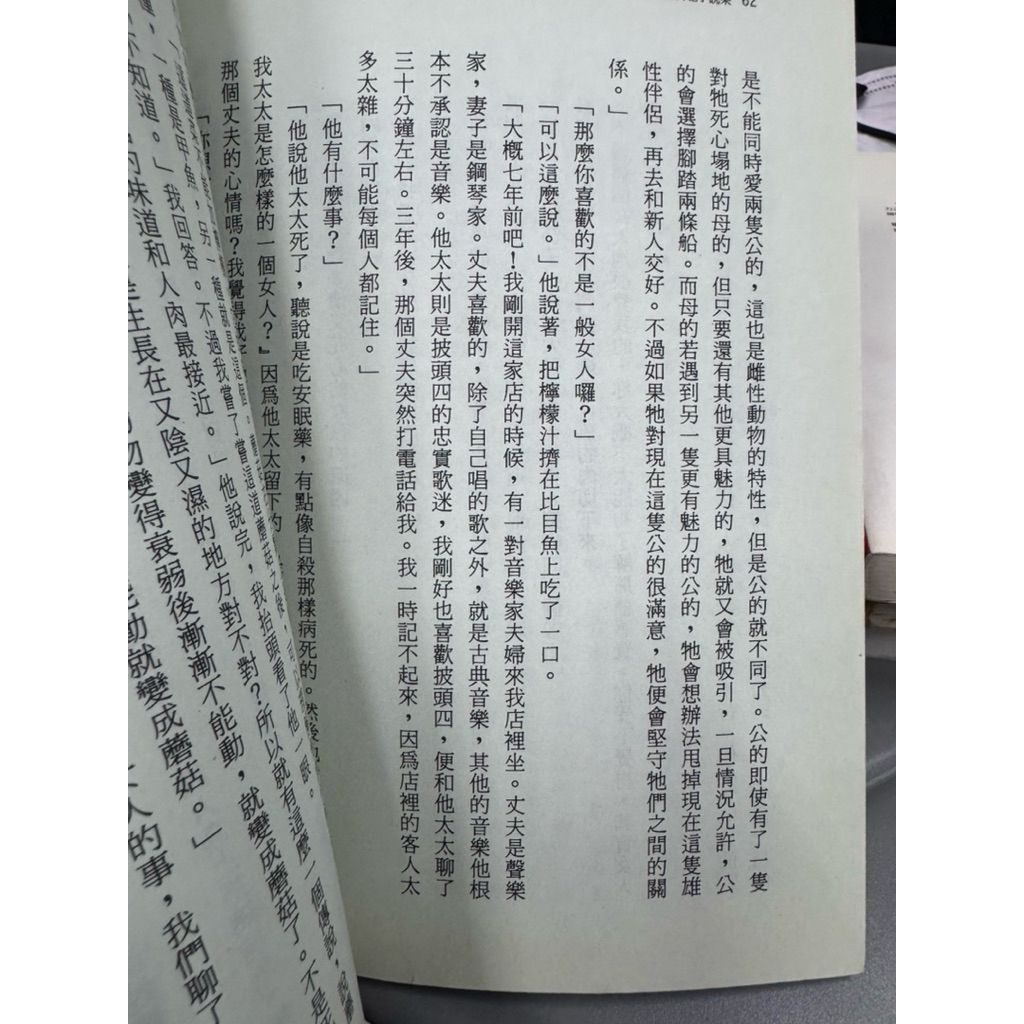 62
是不能同時愛兩隻公的，這也是雌性動物的特性，但是公的就不同了。公的即使有了一隻
對牠死心塌地的母的，但只要還有其他更具魅力的，牠就又會被吸引，一旦情況允許，公
的會選擇腳踏兩條船。而母的若遇到另一隻更有魅力的公的，牠會想辦法甩掉現在這隻雄
性伴侶，再去和新人交好。不過如果牠對現在這隻公的很滿意，牠便會堅守牠們之間的關
係。」
「那麼你喜歡的不是一般女人囉？」
「可以這麼說。」他說著，把檸檬汁擠在比目魚上吃了一口。
「大概七年前吧！我剛開這家店的時候，有一對音樂家夫婦來我店裡坐。丈夫是聲樂
家，妻子是鋼琴家。丈夫喜歡的，除了自己唱的歌之外，就是古典音樂，其他的音樂他根
本不承認是音樂。他太太則是披頭四的忠實歌迷，我剛好也喜歡披頭四，便和他太太聊了
三十分鐘左右。三年後，那個丈夫突然打電話給我。我一時記不起來，因爲店裡的客人太
多太雜，不可能每個人都記住。」
「他有什麼事？」
「他說他太太死了，聽說是吃安眠藥，有點像自殺那樣病死的。然後
我太太是怎麼樣的一個女人？』因爲他太太留下的
那個丈夫的心情嗎？我覺得
一種是甲魚，另一種就是這個。
不知道。」我回答。不過我嘗了嘗這道蘑菇之後，
的味道和人肉最接近。」他說完，我抬頭看了他一眼。
生長在又陰又濕的地方對不對？所以就有這麼一個傳說，說
變得衰弱後漸漸不能動，就變成蘑菇了。不是
動就變成蘑菇。」
人的事，我們聊了